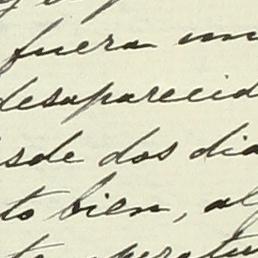 fuera un
desaparecid
sde dos dia
to bien, al